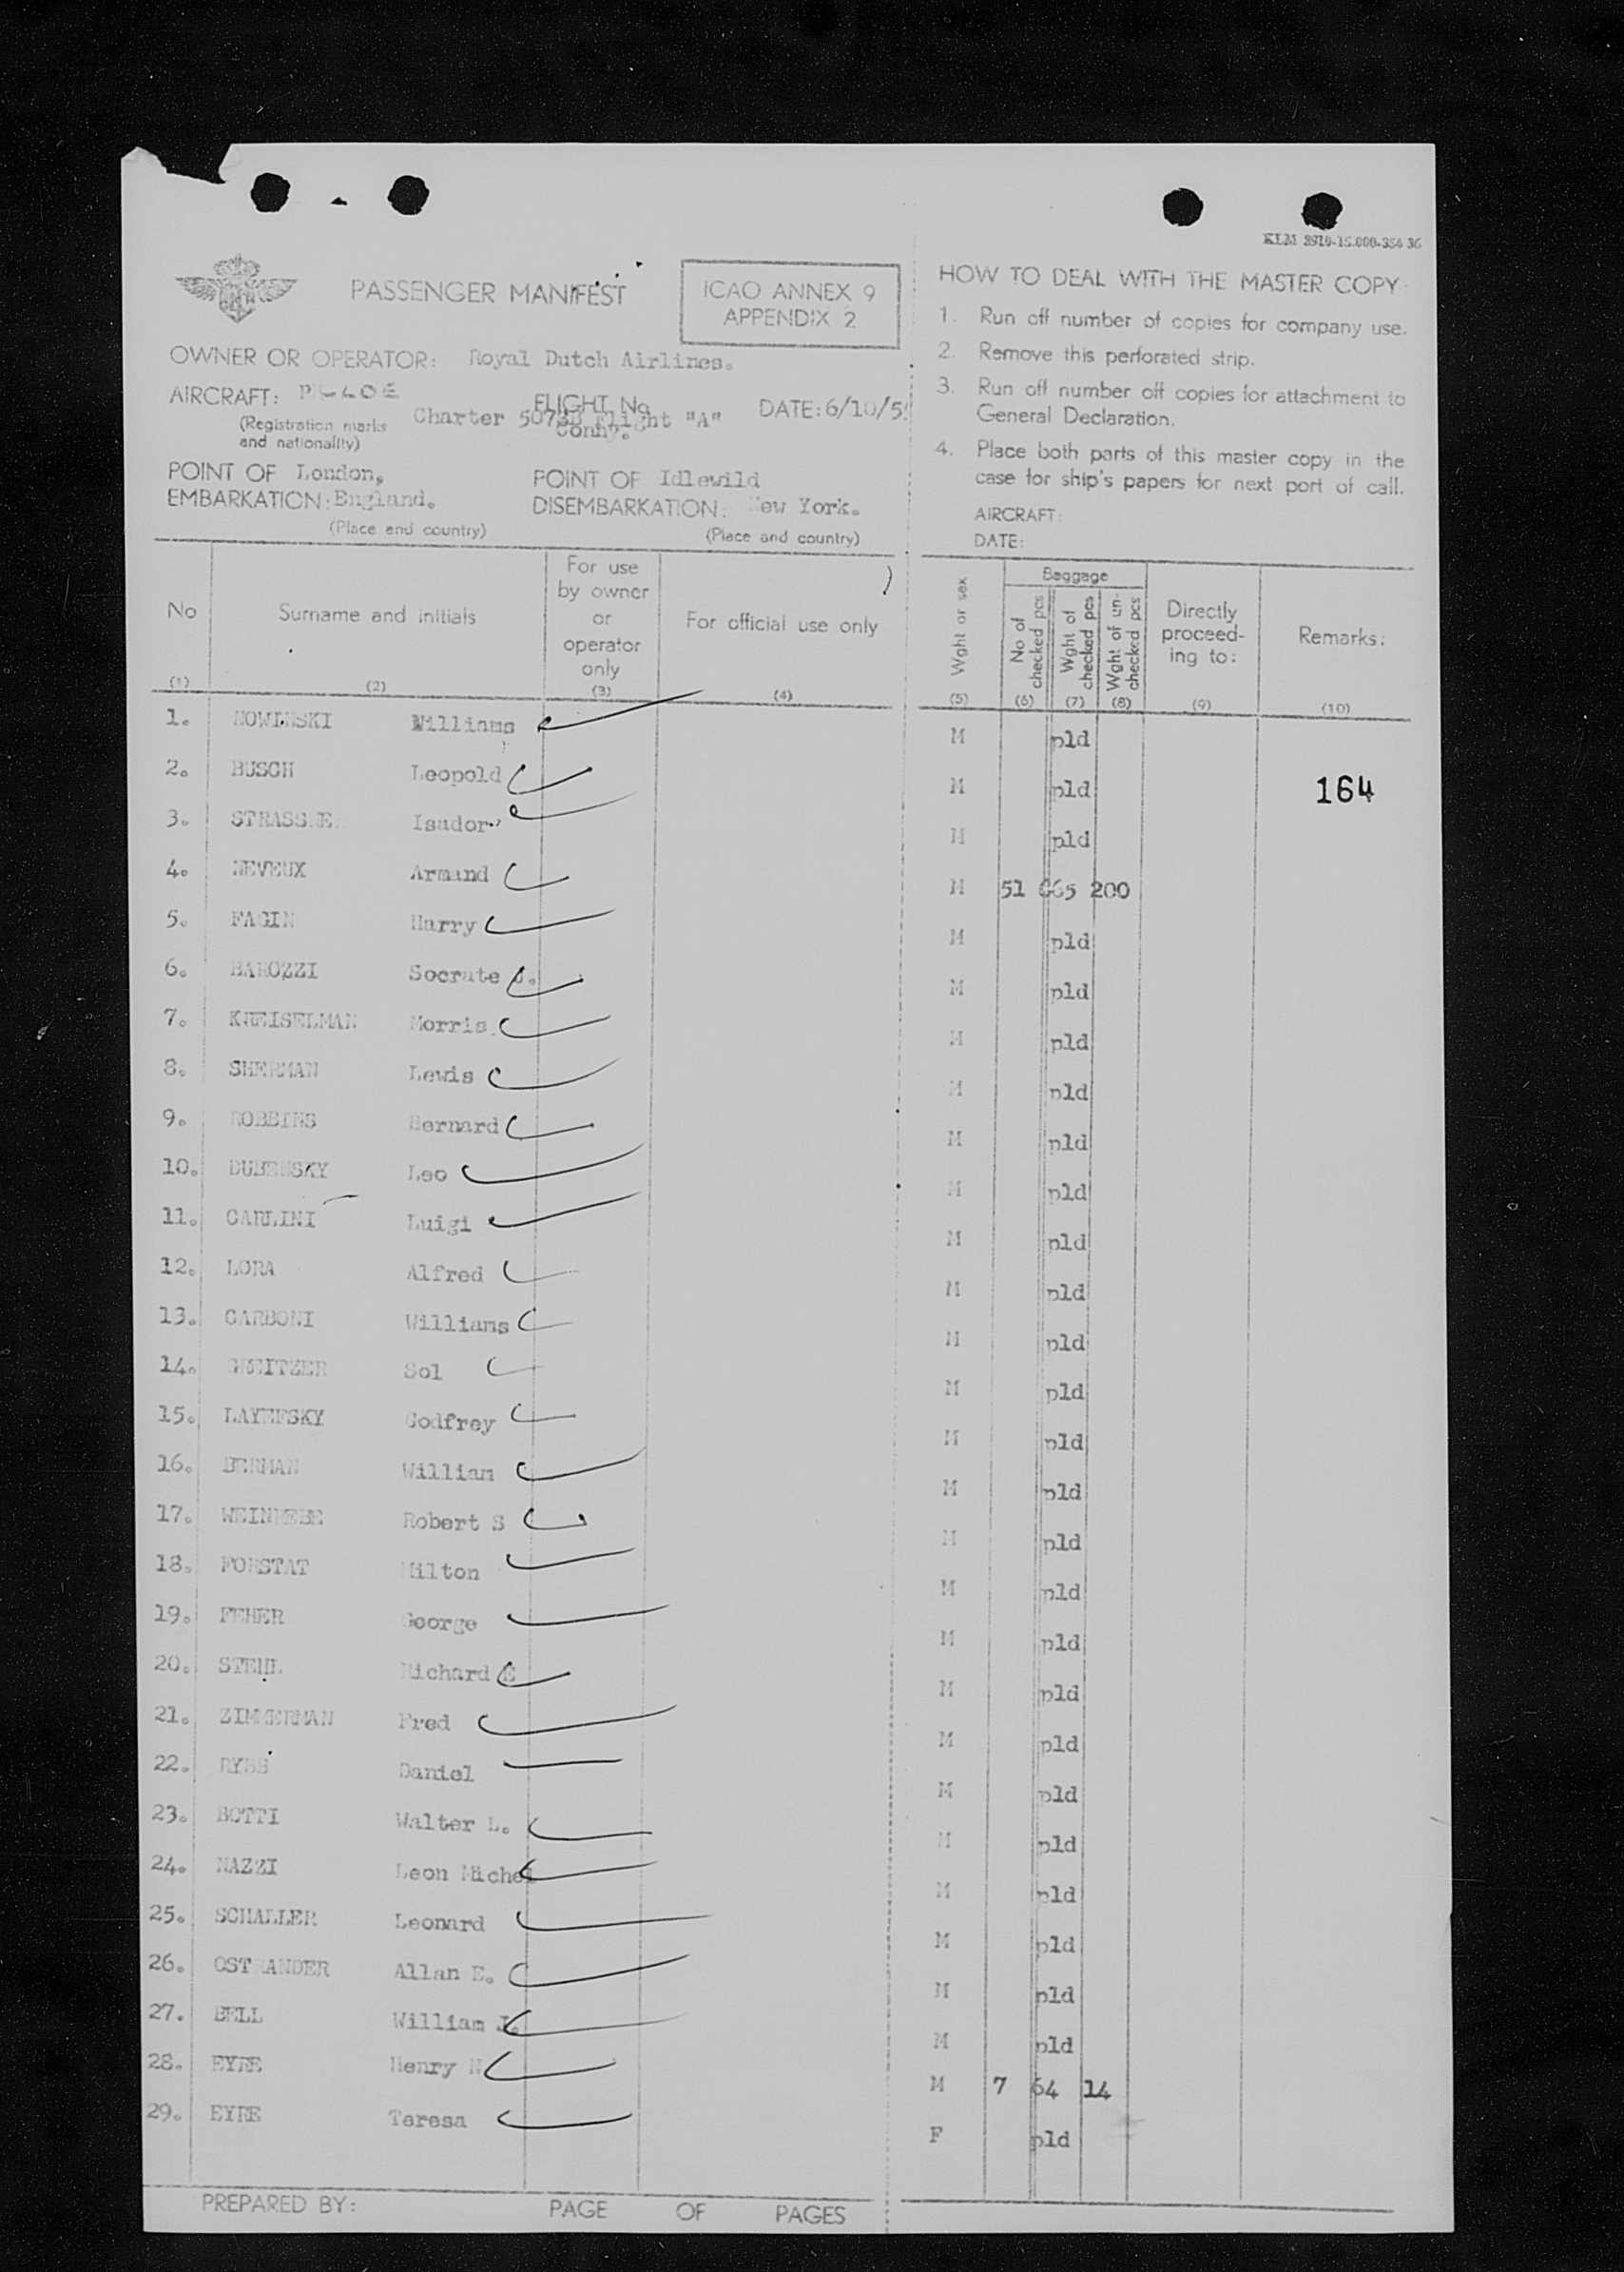 KLM 2910-15.000-354 36
PASSENGER MANIFEST
ICAO ANNEX 9
APPENDIX 2
OWNER OR OPERATOR: Royal Dutch Airlines.
AIRCRAFT:
(Registration marks
and nationality)
FLIGHT No
Charter 5073B Flight "A"
DATE: 6/10/5
POINT OF London,
EMBARKATION: England.
(Place and country)
POINT OF Idlewild
DISEMBARKATION: New York.
(Place and country)
HOW TO DEAL WITH THE MASTER COPY:
1. Run off number of copies for company use.
2. Remove this perforated strip.
3. Run off number off copies for attachment to
General Declaration.
4. Place both parts of this master copy in the
case for ship's papers for next port of call.
AIRCRAFT:
DATE:
No
(1)
Surname and initials
(2)
For use
by owner
or
operator
only
(3)
For official use only
(4)
Wght or sex
(5)
Baggage
No of
checked pcs
(6)
Wght of
checked pcs
(7)
Wght of un-
checked pcs
(8)
Directly
proceed-
ing to:
(9)
Remarks:
(10)
1. NOWINSKI Williams M pld
2. BUSCH Leopold M pld 164
3. Isador M pld
4. NEVEUX Armand M 51 665 200
5. FAGIN Harry M pld
6. BAROZZI Socrate J. M pld
7. KREISELMAN Morris M pld
8. SHERMAN Lewis M pld
9. ROBBINS Bernard M pld
10. DUBENSKY Leo M pld
11. CARLINI Luigi M pld
12. LORA Alfred M pld
13. CARBONI Williams M pld
14. Sol M pld
15. LAYEFSKY Godfrey M pld
16. BERMAN William M pld
17. Robert S M pld
18. FORSTAT Milton M pld
19. FEHER George M pld
20. STEHL Richard E M pld
21. ZIMMERMAN Fred M pld
22. Daniel M pld
23. BOTTI Walter L. M pld
24. NAZZI Leon Michel M pld
25. SCHALLER Leonard M pld
26. OSTRANDER Allan E. M pld
27. BELL William J. M pld
28. EYRE Henry N M 7 64 14
29. EYRE Teresa F pld
PREPARED BY: PAGE OF PAGES